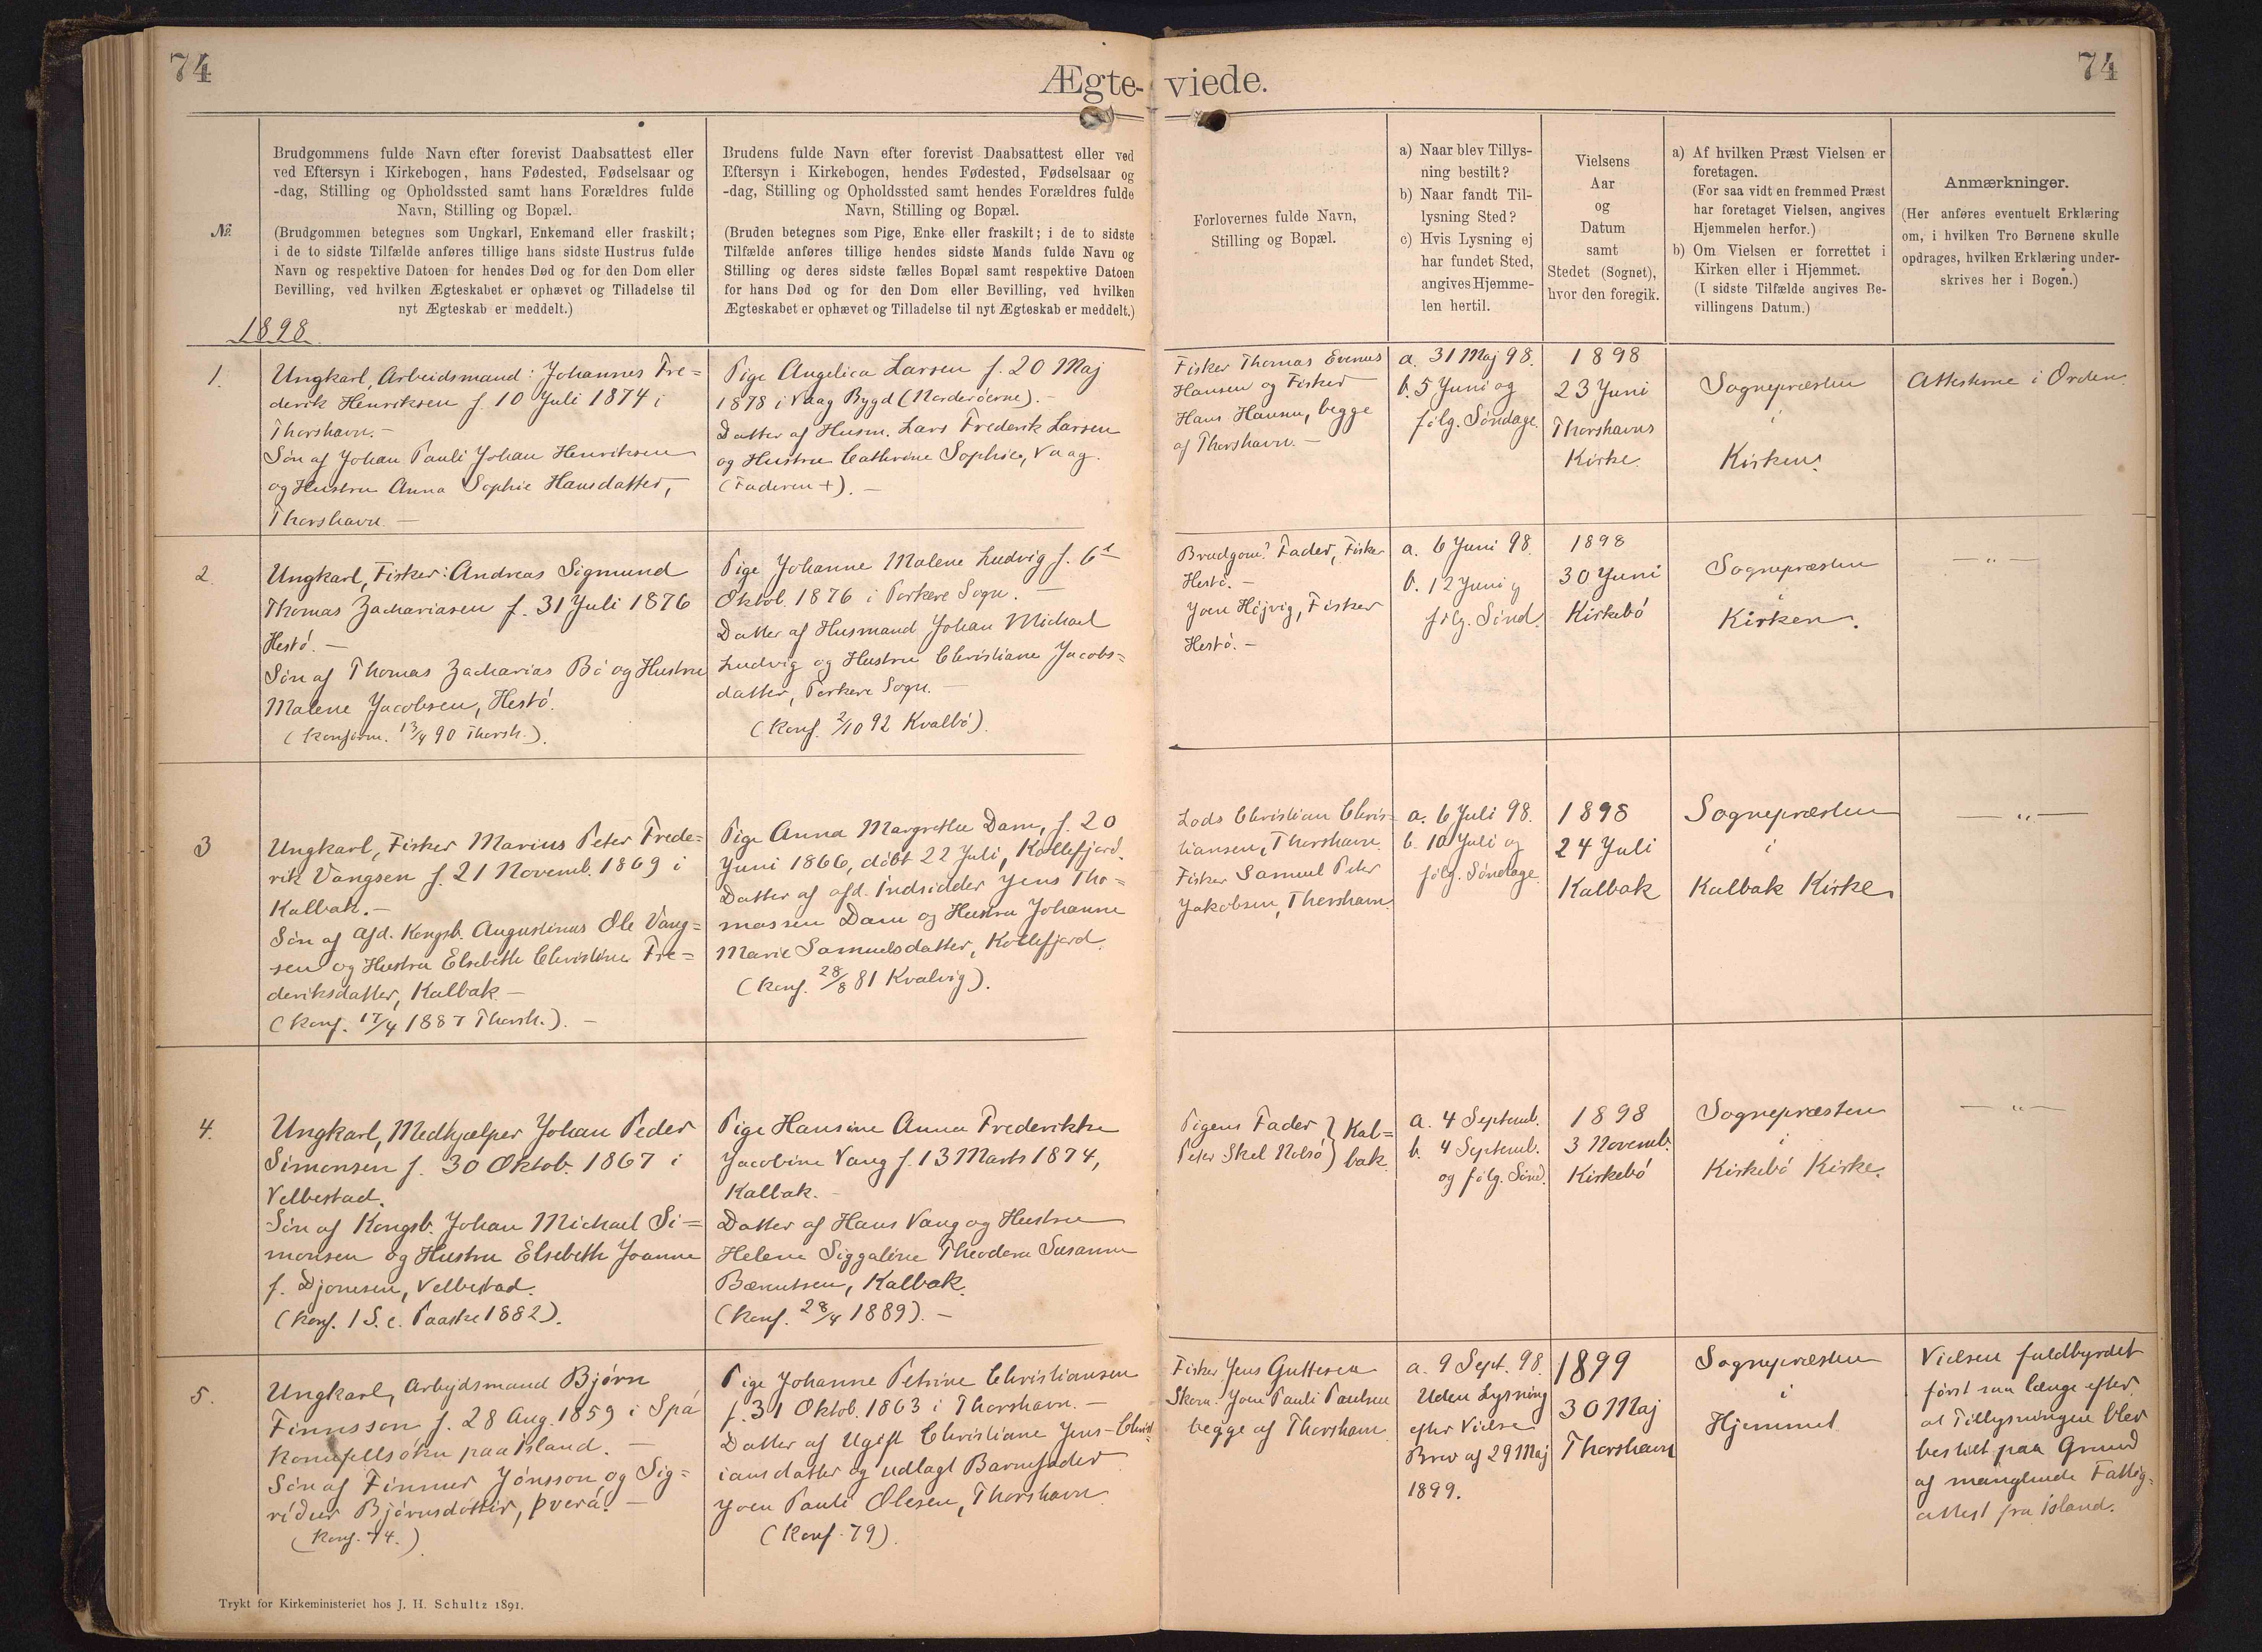 74
Ægte-viede.
74
No.
Brudgommens fulde Navn efter forevist Daabsattest eller
ved Eftersyn i Kirkebogen, hans Fødested, Fødselsaar og
-dag, Stilling og Opholdssted samt hans Forældres fulde
Navn, Stilling og Bopæl.
(Brudgommen betegnes som Ungkarl, Enkemand eller fraskilt;
i de to sidste Tilfælde anføres tillige hans sidste Hustrus fulde
Navn og respektive Datoen for hendes Død og for den Dom eller
Bevilling, ved hvilken Ægteskabet er ophævet og Tilladelse til
nyt Ægteskab er meddelt.)
Brudens fulde Navn efter forevist Daabsattest eller ved
Eftersyn i Kirkebogen, hendes Fødested, Fødselsaar og
-dag, Stilling og Opholdssted samt hendes Forældres fulde
Navn, Stilling og Bopæl.
(Bruden betegnes som Pige, Enke eller fraskilt; i de to sidste
Tilfælde anføres tillige hendes sidste Mands fulde Navn og
Stilling og deres sidste fælles Bopæl samt respektive Datoen
for hans Død og for den Dom eller Bevilling, ved hvilken
Ægteskabet er ophævet og Tilladelse til nyt Ægteskab er meddelt.)
Forlovernes fulde Navn,
Stilling og Bopæl.
a) Naar blev Tillys-
ning bestilt?
b) Naar fandt Til-
lysning Sted?
c) Hvis Lysning ej
har fundet Sted,
angives Hjemme-
len hertil.
Vielsens
Aar
og
Datum
samt
Stedet (Sognet),
hvor den foregik.
a) Af hvilken Præst Vielsen er
foretagen.
(For saa vidt en fremmed Præst
har foretaget Vielsen, angives
Hjemmelen herfor.)
b) Om Vielsen er forrettet i
Kirken eller i Hjemmet.
(I sidste Tilfælde angives Be-
villingens Datum.)
Anmærkninger.
(Her anføres eventuelt Erklæring
om, i hvilken Tro Børnene skulle
opdrages, hvilken Erklæring under-
skrives her i Bogen.)
1898
1.
Ungkarl, Arbeidsmand: Johannes Fre=
derik Henriksen f. 10 Juli 1874 i
Thorshavn.-
Søn af Johan Pauli Johan Henriksen
og Hustru Anna Sophie Hansdatter,
Thorshavn -
Pige Angelica Larsen f. 20 Maj
1878 i Vaag Bygd (Norderöerne).-
Datter af Husm. Lars Frederik Larsen
og Hustru Cathrine Sophie, Vaag.
(Faderen +). -
Fisker Thomas Evenus
Hansen og Fisker
Hans Hansen, begge
af Thorshavn. -
a. 31 Maj 98.
b. 5 Juni og
følg. Søndage.
1898
23 Juni
Thorshavns
Kirke
Sognepræsten
i
Kirken.
Attesterne i Orden.
2.
Ungkarl, Fisker: Andreas Sigmund
Thomas Zachariasen f. 31 Juli 1876
Hestö. -
Søn af Thomas Zacharias Bö og Hustru
Malene Jacobsen, Hestö.
(Konfirm. 13/4 90 Thorsh.).
Pige Johanne Malene Ludvig f. 6t
Oktob. 1876 i Porkere Sogn. -
Datter af Husmand Johan Michael
Ludvig og Hustru Christiane Jacobs=
datter, Porkere Sogn. -
(Konf. 2/10 92 Kvalbö).
Brudgom. Fader, Fisker
Hestö. -
Joen Höjvig, Fisker
Hestö. -
a. 6 Juni 98.
b. 12 Juni og
følg. Sönd.
1898
30 Juni
Kirkebö
Sognepræsten
i
Kirken.
— „ —
3
Ungkarl, Fisker Marius Peter Frede=
rik Vangsen f. 21 Novemb. 1869 i
Kalbak.-
Søn af Afd. Kongsb. Augustinus Ole Vang=
sen og Hustru Elsebeth Christine Fre=
deriksdatter, Kalbak -
(Konf. 17/4 1887 Thorsh.). -
Pige Anna Margrethe Dam, f. 20
Juni 1866, döbt 22 Juli, Kollefjord.
Datter af afd. Indsidder Jens Tho=
massen Dam og Hustru Johanne
Marie Samuelsdatter, Kollefjord.
(Konf. 28/8 81 Kvalvig).
Lods Christian Chris=
tiansen, Thorshavn.
Fisker Samuel Peter
Jakobsen, Thorshavn
a. 6 Juli 98.
b. 10 Juli og
følg. Søndage.
1898
24 Juli
Kalbak
Sognepræsten
i
Kalbak Kirke.
— „ —
4.
Ungkarl, Medhjælper Johan Peder
Simonsen f. 30 Oktob. 1867 i
Velbestad.
Søn af Kongsb. Johan Michael Si=
monsen og Hustru Elsebeth Joanne
f. Djonesen, Velbestad.
(Konf. 1 S. e. Paaske 1882).
Pige Hansine Anna Frederikke
Jacobine Vang f. 13 Marts 1874,
Kalbak. -
Datter af Hans Vang og Hustru
Helene Siggaline Theodora Susanne
Bærentsen, Kalbak.
(Konf. 28/4 1889). -
Pigens Fader } Kal=
Peter Skel Nolsö } bak
a. 4 Septemb.
b. 4 Septemb.
og følg. Sönd.
1898
3 Novemb.
Kirkebö
Sognepræsten
i
Kirkebö Kirke.
— „ —
5.
Ungkarl, Arbejdsmand Björn
Finnsson f. 28 Aug. 1859 i Spá
konufellsókn paa Island. -
Søn af Finnur Jónsson og Sig=
ríður Björnsdóttir, Þverá. -
(Konf. 74.)
Pige Johanne Petrine Christiansen
f. 31 Oktob. 1863 i Thorshavn. -
Datter af Ugift Christiane Jens-Christ
iansdatter og udlagt Barnefader
Joen Pauli Olesen, Thorshavn
(Konf. 79).
Fisker Jens Guttesen
Skom. Joen Pauli Paulsen
begge af Thorshavn
a. 9 Sept. 98.
Uden Lysning
efter Vielse
Brev af 29 Maj
1899.
1899
30 Maj
Thorshavn
Sognepræsten
i
Hjemmet
Vielsen fuldbyrdet
först saa længe efter
at Tillysningen blev
bestilt paa Grund
af manglende Fattig=
attest fra Island.
Trykt for Kirkeministeriet hos J. H. Schultz 1891.